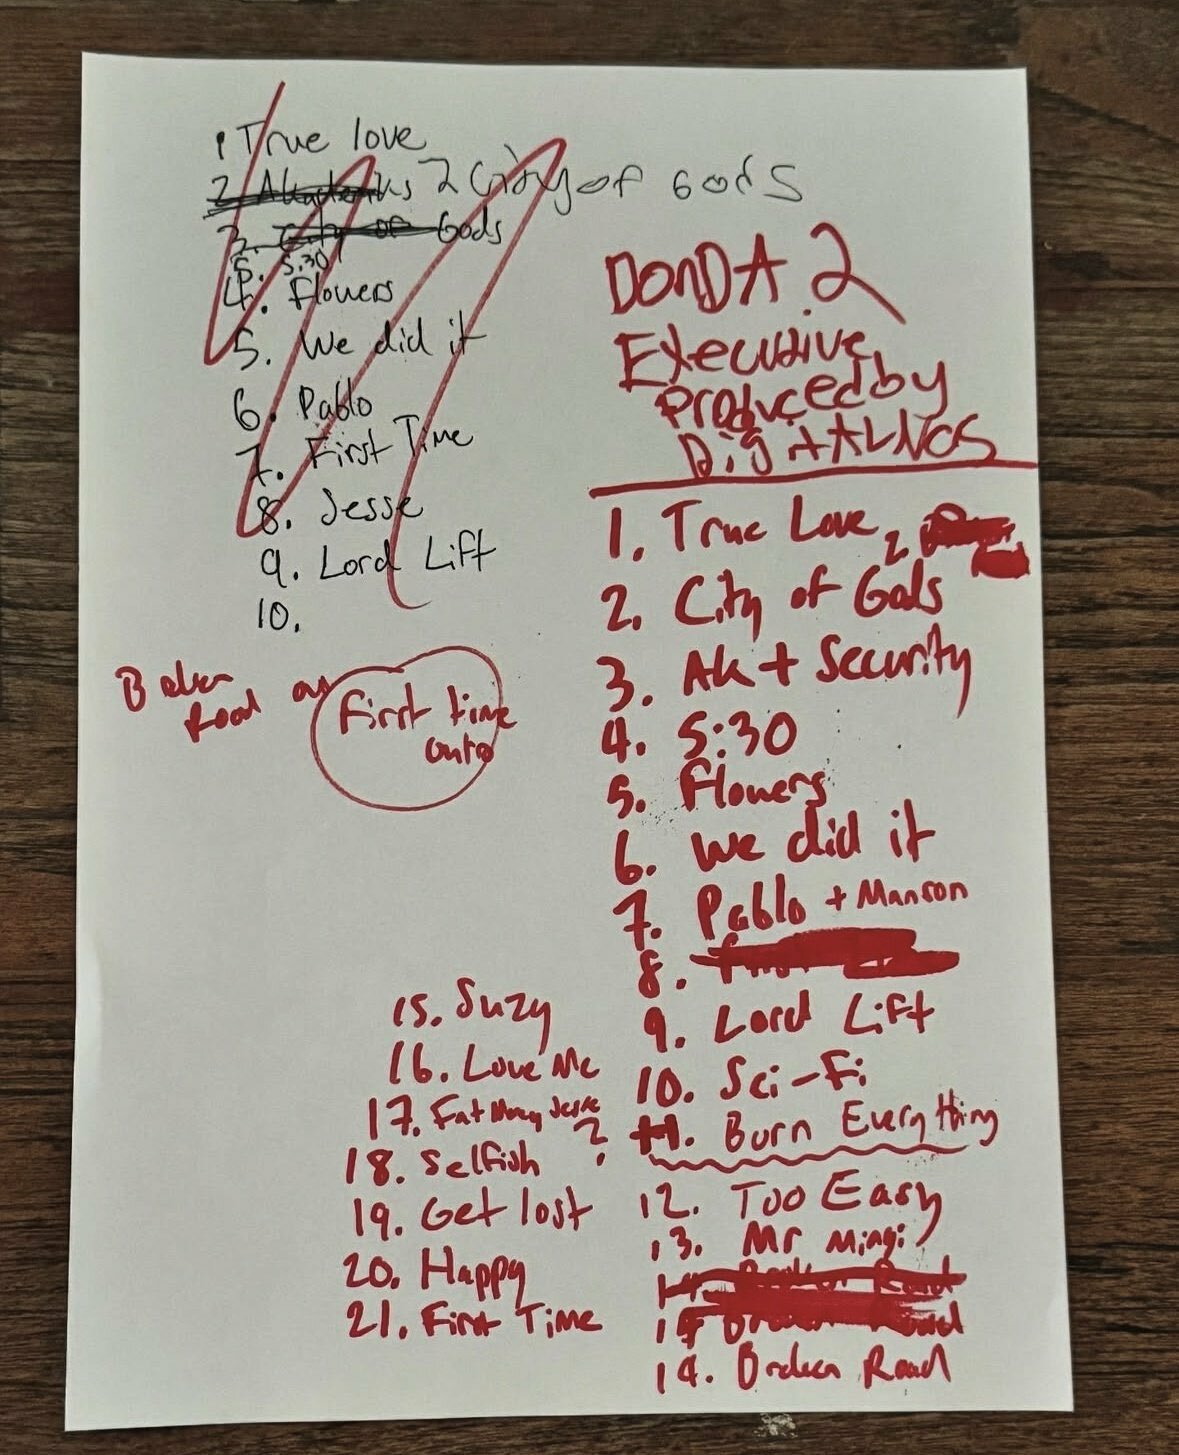 1 True love
2 Akademiks 2 City of Gods
3. City of Gods
5. 5:30
4. Flowers
5. We did it
6. Pablo
7. First Time
8. Jesse
9. Lord Lift
10.
Broken
Road as
First time
outro
DONDA 2
Executive
Produced by
DigitALNOS
1. True Love 2.
2. City of Gods
3. Ak + Security
4. 5:30
5. Flowers
6. We did it
7. Pablo + Manson
8.
9. Lord Lift
10. Sci-Fi
11. Burn Everything
12. Too Easy
13. Mr Mingi
14. Broken Road
15 Broken Road
14. Broken Road
15. Suzy
16. Love Me
17. Fat Money Jesse
18. Selfish ?
19. Get lost
20. Happy
21. First Time